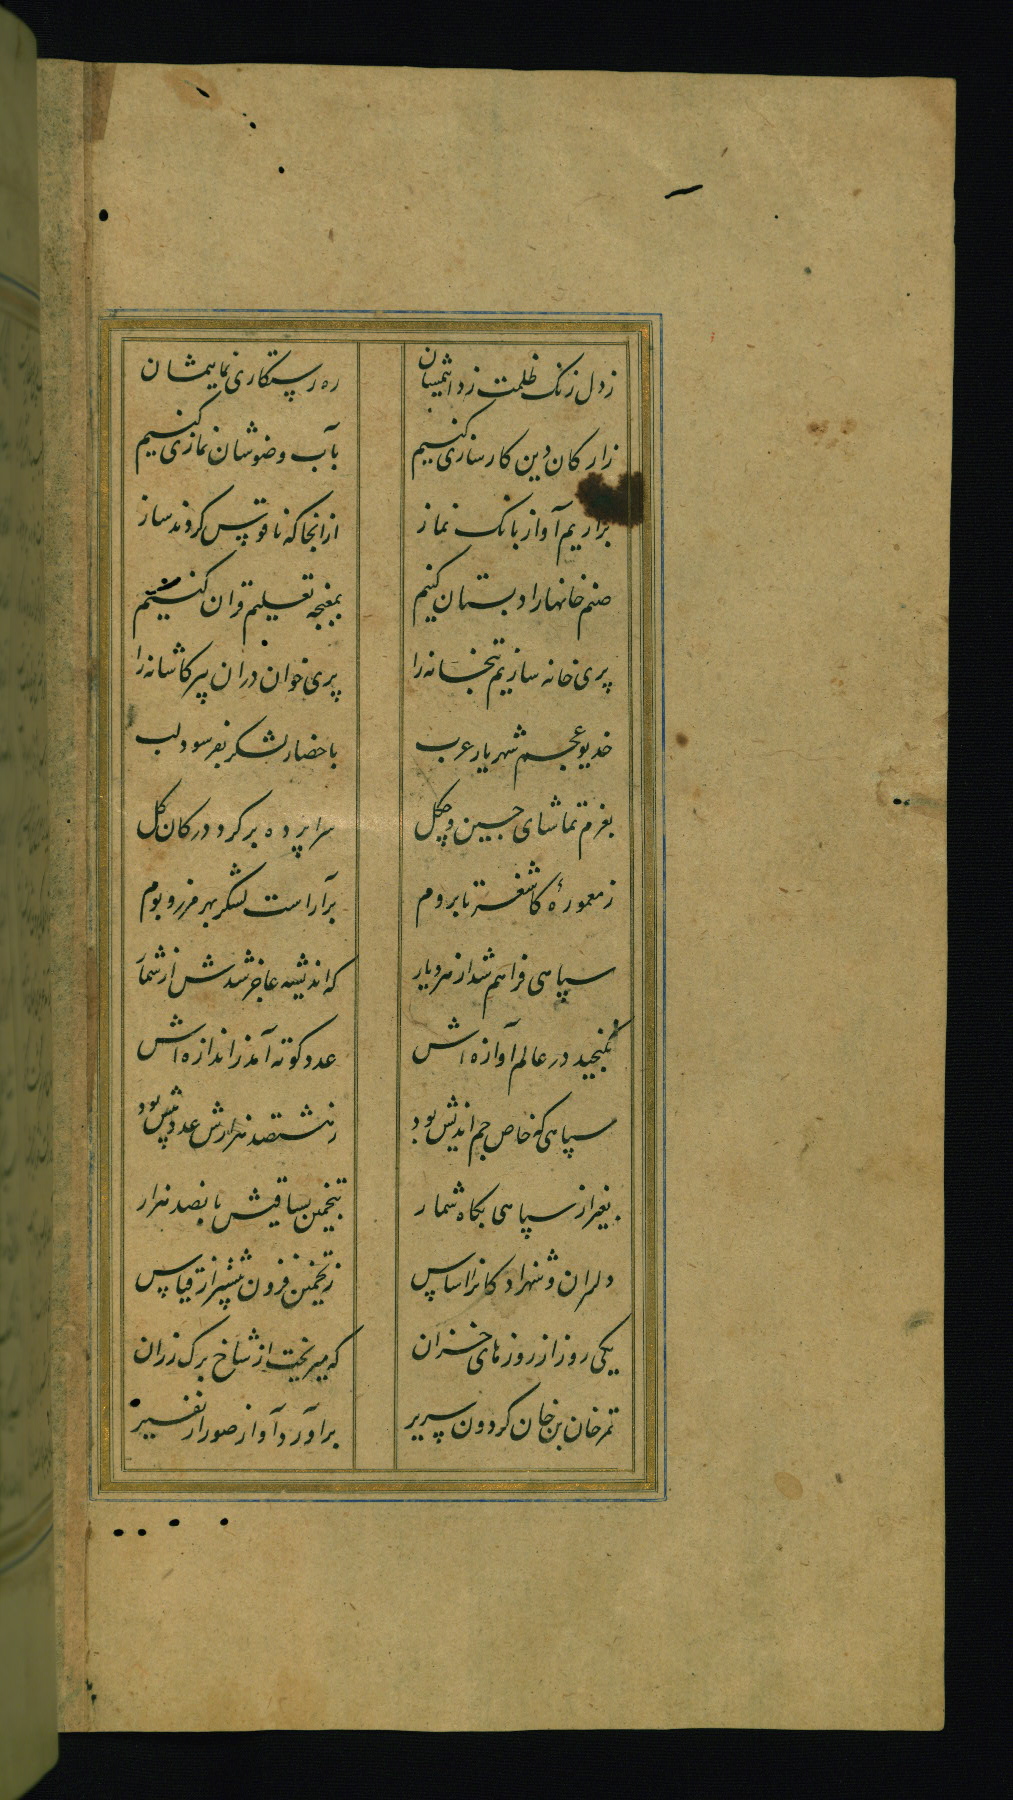 ز دل زنگ ظلمت زدائیمشان ره رستکاری نمائیمشان
ز ارکان دین کارسازی کنیم بآب وضوشان نمازی کنیم
براریم آواز بانک نماز ازانجا که ناقوس کردند ساز
صنم خانها را دبستان کنیم بمغبچه تعلیم قران کنیم
پری خانه سازیم بتخانه را پری خوان دران پیر کاشانه را
خدیو عجم شهریار عرب باحضار لشکر بفرسود لب
بعزم تماشای چین و چکل سراپرده بر کرد در کان کل
ز معمورهٔ کاشغر تا بروم برآراست لشکر بهر مرز و بوم
سپاهی فراهم شد از هر دیار که اندیشه عاجز شدش از شمار
نگنجید در عالم آوازه اش عدد کوته آمد ز اندازه اش
سپاهی که خاص جم اندیش بود ز هشتصد هزارش عدد بیش بود
بغیر از سپاهی بکاه شمار بتخمین یساقیش پانصد هزار
دلیران و شهزادگانرا اساس ز تخمین فزون بیشتر از قیاس
یکی روز از روزهای خزان که میریخت از شاخ برک رزان
تمرخان بن خان کردون سریر براورد آواز صور از نفیر